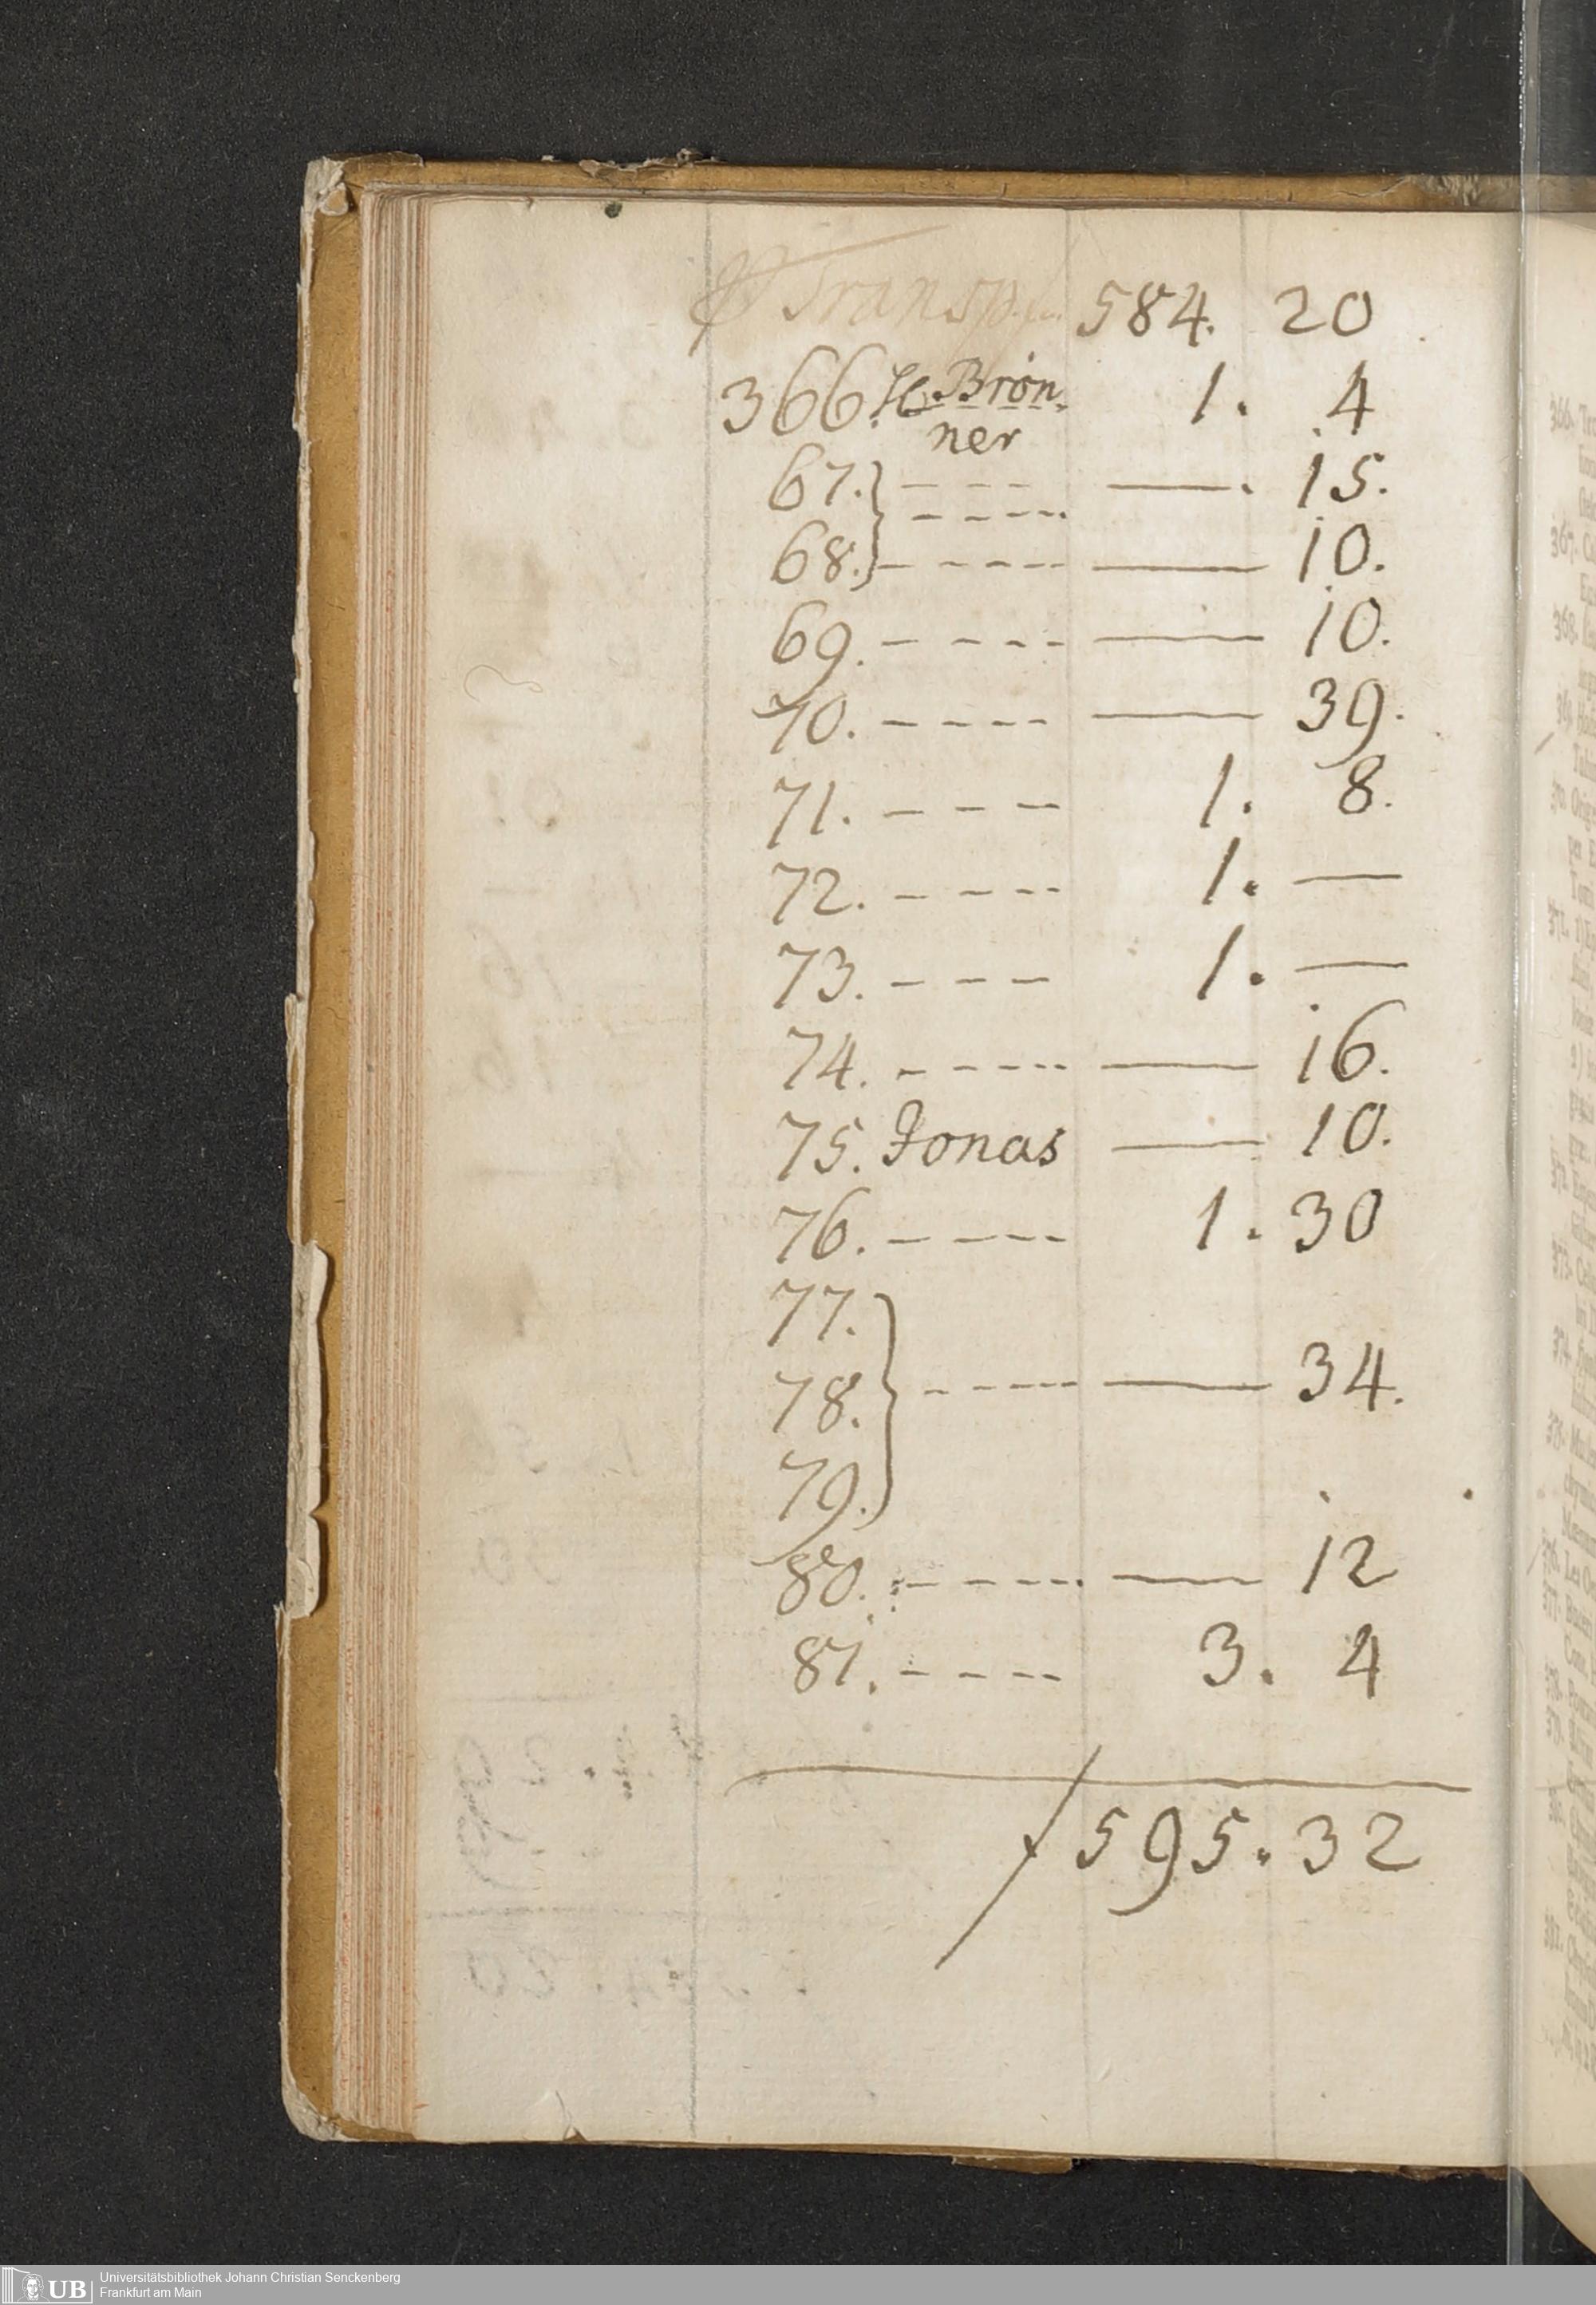 Transp. 584. 20
366. H. Brön
ner 1. 4
67. } - - - —. 15.
68. } - - - - — 10.
69. - - - - — 10.
70. - - - - — 39.
71. - - - 1. 8.
72. - - - - 1. —
73. - - - 1. —
74. - - - - — 16.
75. Jonas — 10.
76. - - - - 1. 30
77.
78. } - - - - — 34.
79.
80. - - - - — 12
81. - - - - 3. 4
595. 32
UB Universitätsbibliothek Johann Christian Senckenberg
Frankfurt am Main